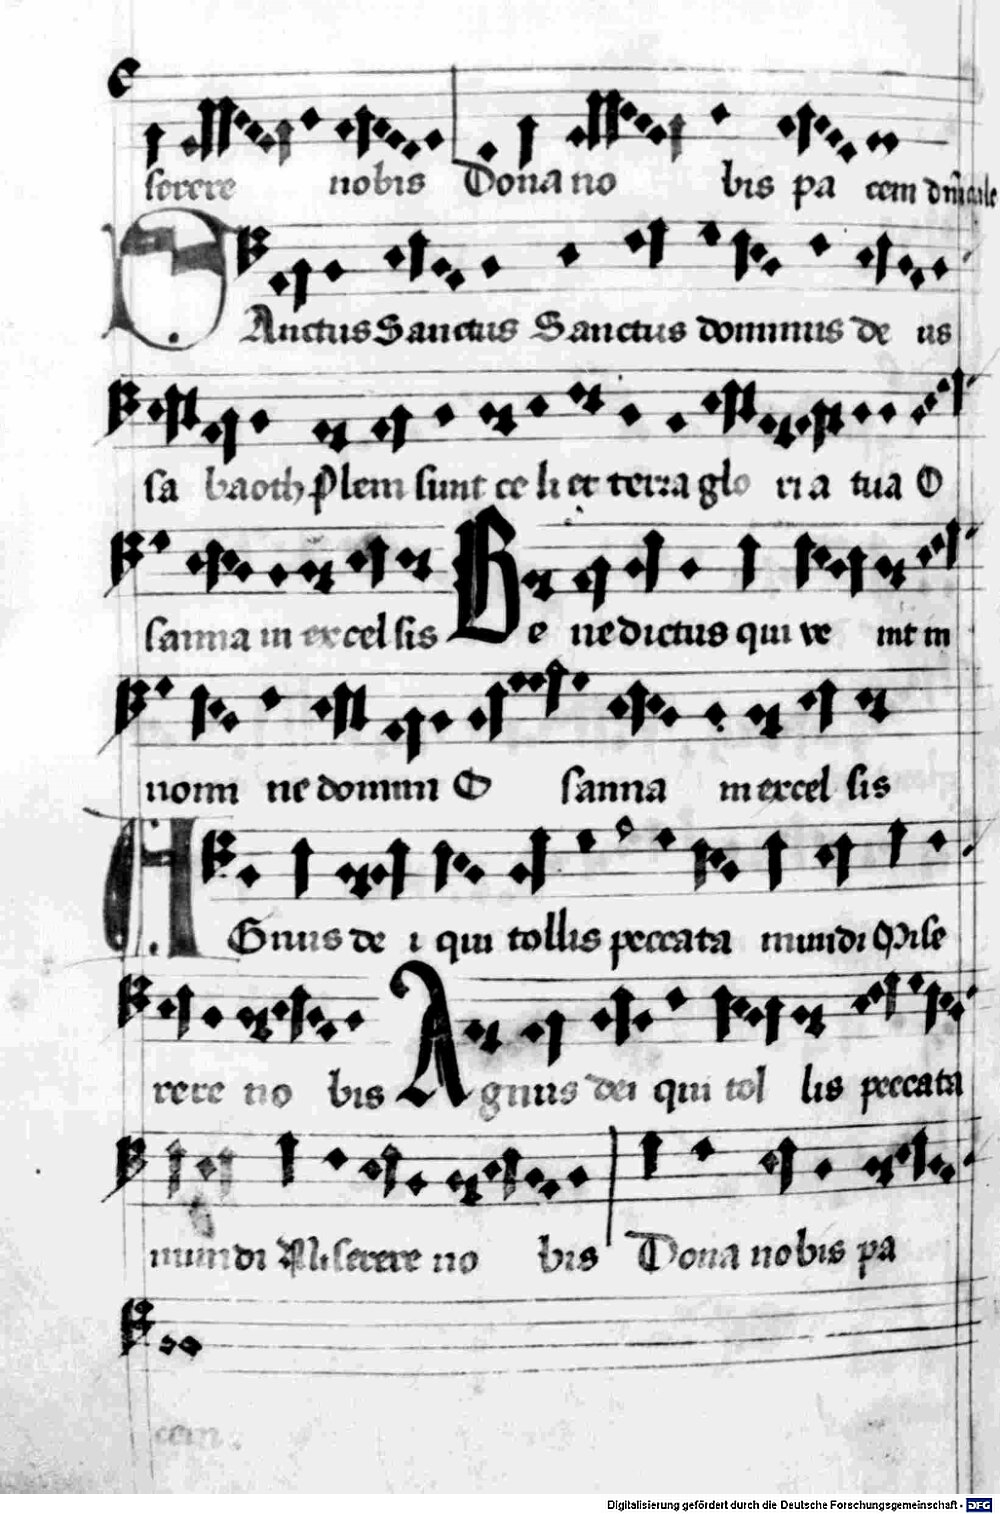 serere nobis Dona no bis pa cem
Anctus Sanctus Sanctus dominus de us
sa baoth Plem sunt ce li et terra glo ri a tua O
sanna in excel sis Be ne dictus qui ve int in
nomi ne domini O sanna in excel sis
AGnus de i qui tollis peccata mundi Mise
rere no bis Agnus dei qui tol lis peccata
mundi Miserere no bis Dona nobis pa
cem
Digitalisierung gefördert durch die Deutsche Forschungsgemeinschaft - DFG